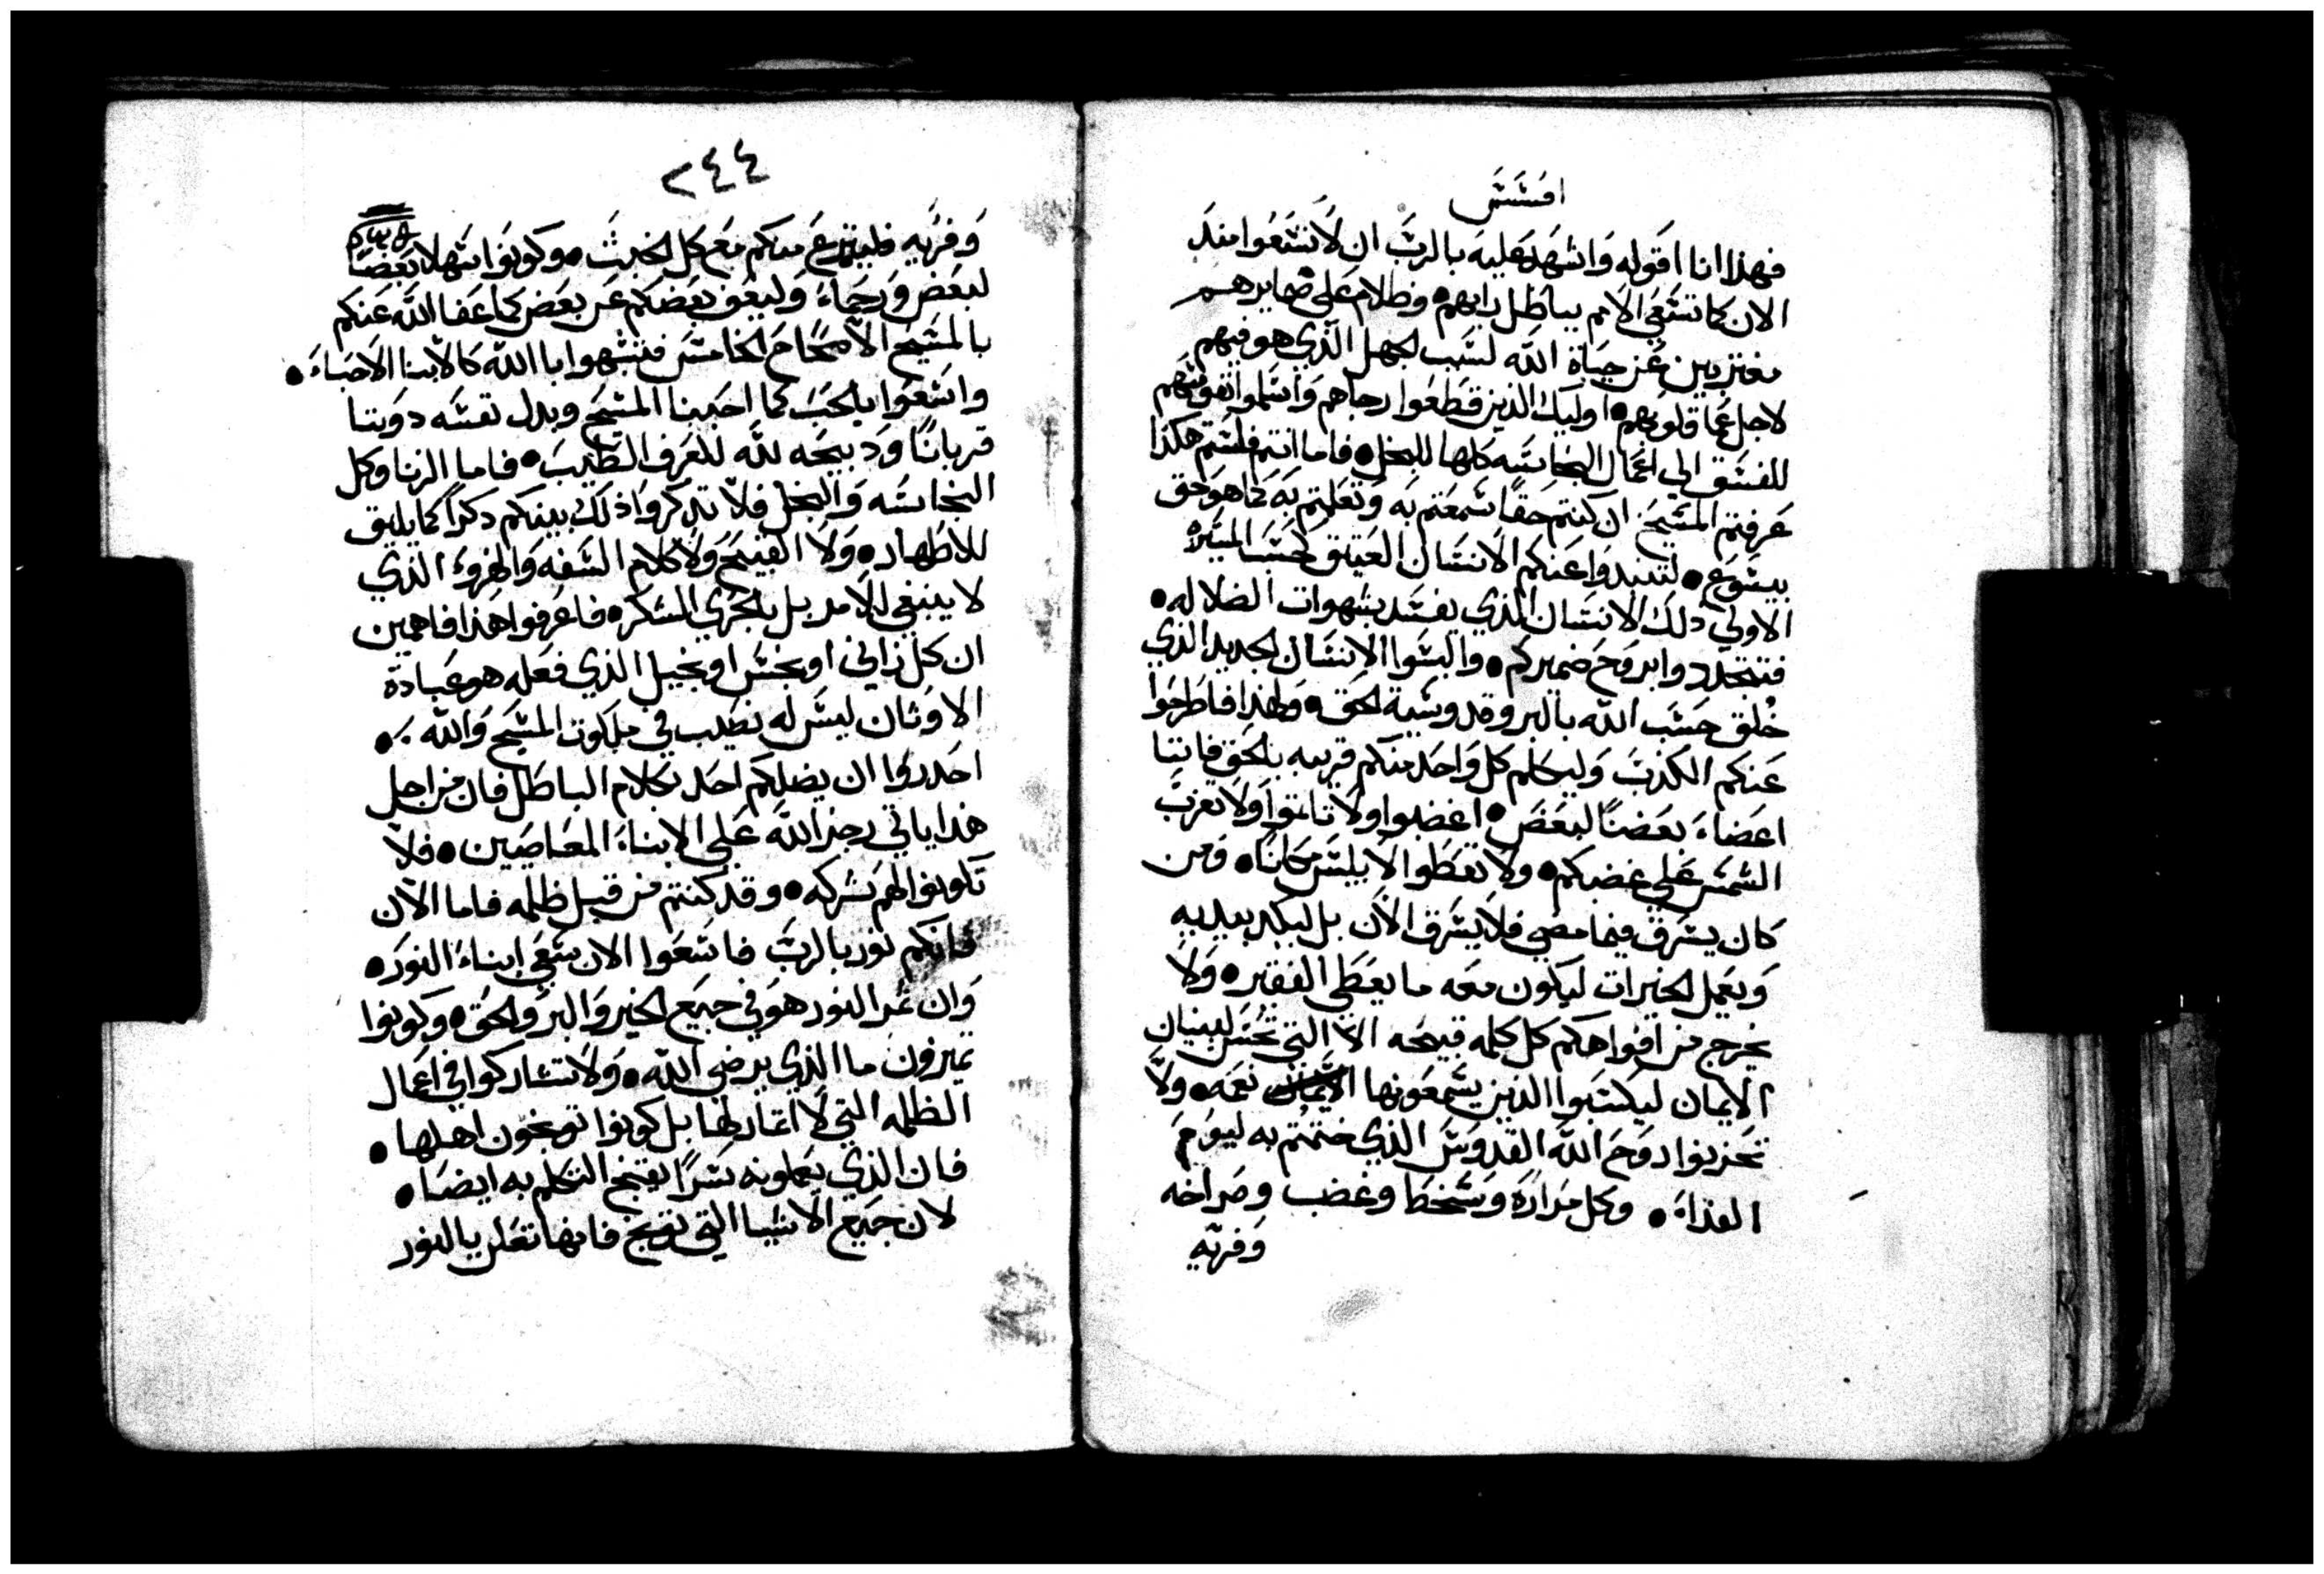 افسس
فهذا انا اقوله واشهد عليه بالرب ان لا تسعوا منذ
الان كما تسعي الامم بباطل رايهم وظلام علي ضمايرهم
مغتربين عن حياة الله لسبب الجهل الذي هو فيهم
لاجل عما قلوبهم اوليك الذين قطعوا رجاهم واسلموا نفوسهم
للفسق الي اعمال النجاسه كلها للبخل فاما انتم فلستم هكذا
عرفتم المسيح ان كنتم حقا سمعتم به وتعلمتم به كما هو حق
بيسوع لتنبدوا عنكم الانسان العتيق كحسب السيره
الاولي ذلك الانسان الذي يفسد بشهوات الضلاله
فتتجددوا بروح ضميركم والبسوا الانسان الجديد الذي
خلق حسب الله بالبر وقدوسية الحق ولهذا فاطرحوا
عنكم الكذب وليكلم كل واحد منكم قريبه بالحق فاننا
اعضاء بعضنا لبعض اغضبوا ولا تاتموا ولا تغرب
الشمس علي غضبكم ولا تعطوا لابليس مكانا ومن
كان يسرق فيما مضي فلا يسرق الان بل ليكد بيديه
ويعمل الخيرات ليكون معه ما يعطي الفقير ولا
يخرج من افواهكم كل كلمه قبيحه الا التي تحسن لبنيان
الايمان ليكتسبوا الذين يسمعونها نعمه ولا
تحزنوا روح الله القدوس الذي ختمتم به ليوم
الفداء وكل مرارة وسخط وغضب وصراخه
وفريه
٢٤٤
وفريه فلينزع منكم مع كل الخبث وكونوا سهلا بعضا
لبعض ورحماء وليعف بعضكم عن بعض كما عفا الله عنكم
بالمسيح الاصحاح الخامس فتشبهوا باالله كالابنا الاحباء
واسعوا بالحب كما احبنا المسيح وبدل نفسه دوننا
قربانا ودبيحه لله للعرف الطيب فاما الزنا وكل
النجاسه والبخل فلا تدكروا ذلك بينكم دكرا كما يليق
للاطهار ولا القبيح ولا كلام السفه والهزوء الذي
لا ينبغي للامر بل بالحري الشكر فاعرفوا هذا فاهمين
ان كل زاني او نجس او بخيل الذي فعله هو عبادة
الاوثان ليس له نصيب في ملكوت المسيح والله
احدروا ان يضلكم احد بكلام الباطل فان من اجل
هذا ياتي رجز الله علي الابناء المعاصين فلا
تكونوا لهم شركه وقد كنتم من قبل ظلمه فاما الان
فانكم نور بالرب فاسعوا الان سعي ابناء النور
وان ثمر النور هو في جميع الخير والبر والحق وكونوا
تميزون ما الذي يرضي الله ولا تشاركوا في اعمال
الظلمه التي لا اثمار لها بل كونوا توبخون اهلها
فان الذي يعملونه سرا يقبح التكلم به ايضا
لان جميع الاشيا التي توبخ فانها تعلن بالنور